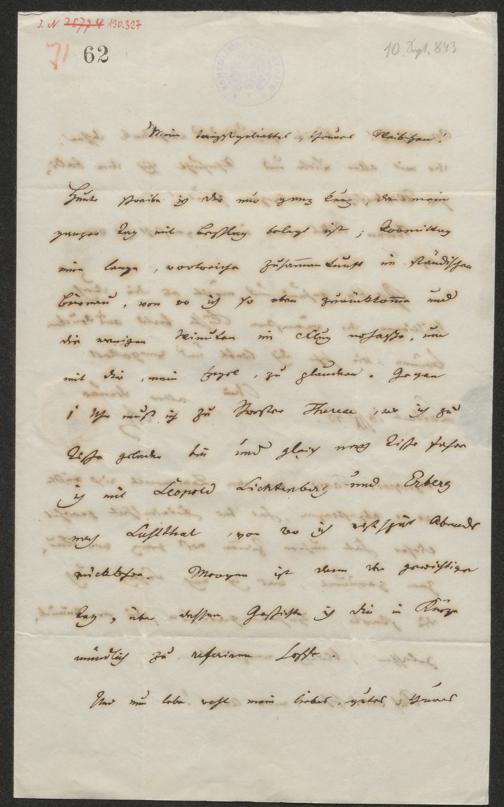 I. N 26774 130.327
71 62
10. Sept. 843
Mein innigstgeliebtes, theures Weibchen!
Heute schreibe ich dir nur ganz kurz, da mein
ganzer Tag mit Beschlag belegt ist; Vormittag
eine lange, wortreiche Zusammenkunft im ständischen
Bureau, von wo ich so eben zurückkomme und
die wenigen Minuten im Flug erhasche, um
mit dir, mein Engel, zu plaudern. Gegen
1 Uhr muß ich zu Schwester Therese, wo ich zu
Tische geladen bin und gleich nach Tische fahre
ich mit Leopold Lichtenberg und Erberg
nach Lustthal, von wo ich erst spät Abends
rückkehre. Morgen ist dann der gewichtige
Tag, über dessen Geschichte ich dir in Kürze
mündlich zu referiren hoffe.
Und nun lebe wohl mein liebes, gutes, theures